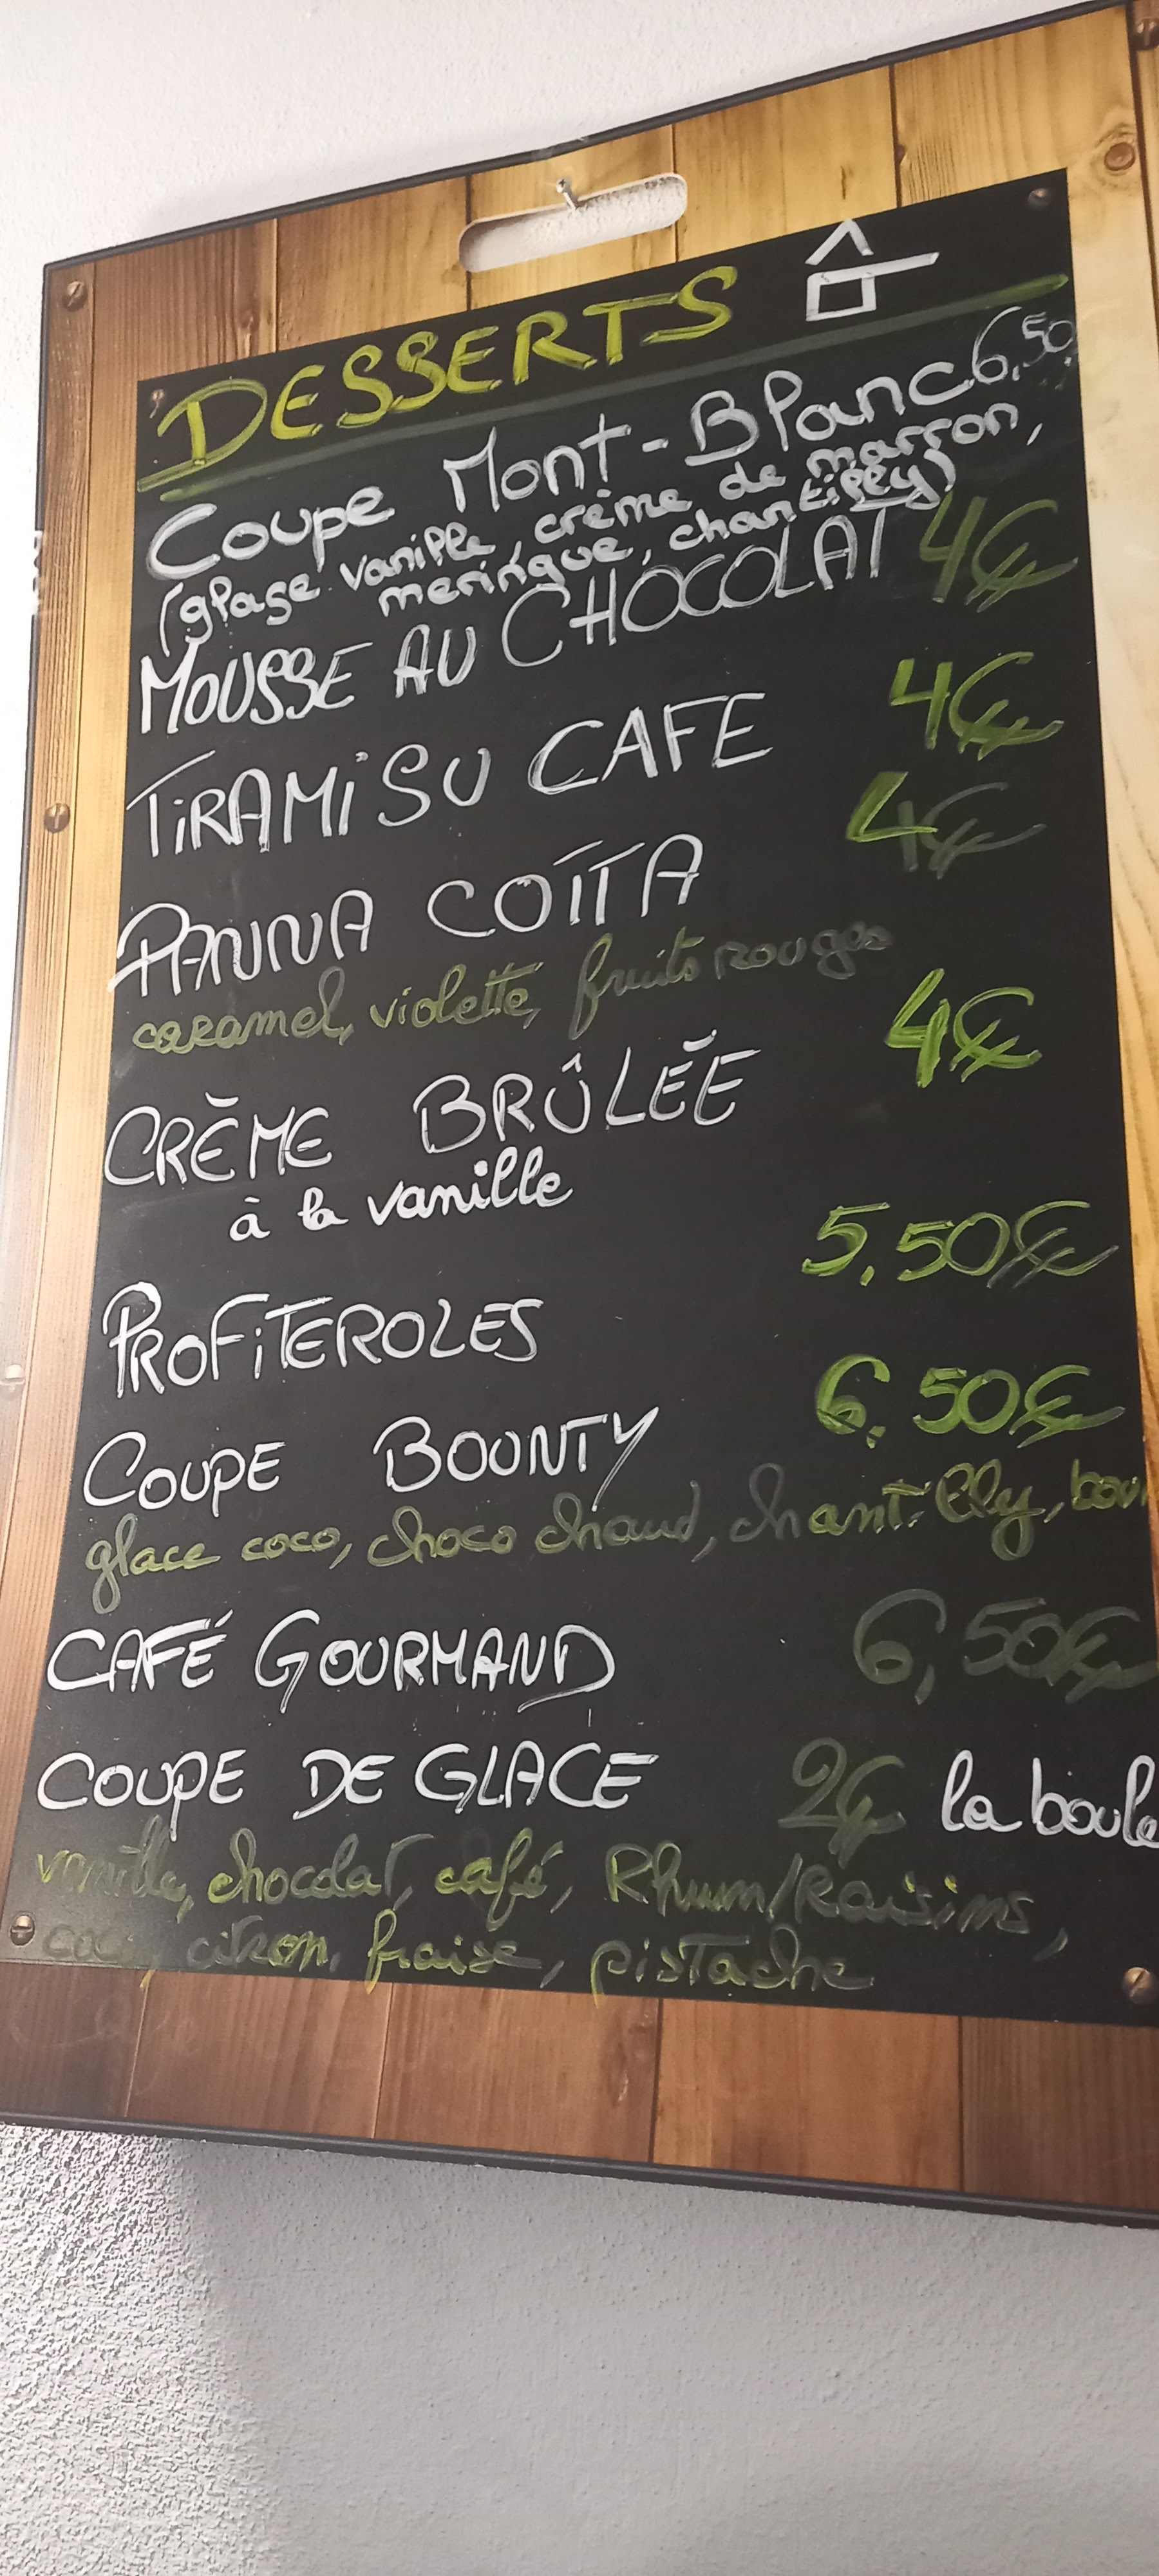 DESSERTS
Coupe Mont-Blanc 6,50
(glase vanille, crème de marron,
meringue, chantilly)
MOUSSE AU CHOCOLAT 4€
TiRAMiSU CAFE 4€
PANNA COTTA 4€
caramel, violette, fruits rouges
CRÈME BRÛLÉE 4€
à la vanille
PROFiTEROLES 5,50€
COUPE BOUNTY 6,50€
glace coco, choco chaud, chantilly,
CAFÉ GOURMAND 6,50€
COUPE DE GLACE 2€ la boule
vanille, chocolat, café, Rhum/Raisins,
coco, citron, fraise, pistache